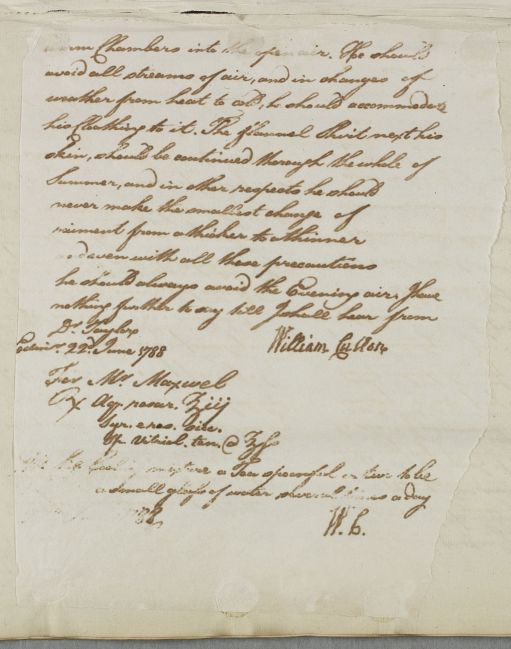 warm Chambers into the open air. He should
avoid all streams of air, and in changes of
weather from heat to cold, he should accommodate
his Cloathing to it. The flannel Shirt next his
skin, should be continued thorough the whole of
Summer, and in other respects he should
never make the smallest change of
raiment from a thicker to a thinner
and even with all these precautions
he should always avoid the Evening air. I have
nothing further to say till I shall hear from
Dr. Taylor
Edinr. 22d. June 1788
William Cullen
For Mr. Maxwel
Rx Aq. rosar. ℥iij
Syr. e ros. sicc.
Sp. Vitriol. ten. @ ℥ſs
mixture a Tea spoonful or two to be
a small glass of water several times a day
88
W. C.